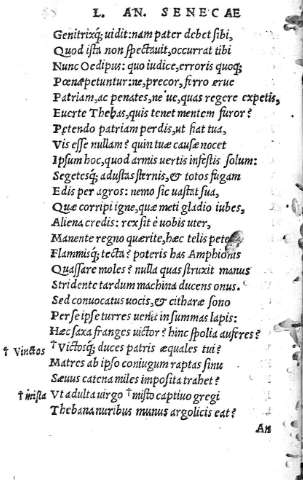 L. AN. SENECAE
Genitrixq; uidit: nam pater debet sibi,
Quod ista non spectauit, occurrat tibi
Nunc Oedipus: quo iudice, erroris quoq;
Pœnæ petuntur: ne, precor, ferro erue
Patriam, ac penates, neue, quas regere expetis,
Euerte Thebas, quis tenet mentem furor?
Petendo patriam perdis, ut fiat tua,
Vis esse nullam? quin tuæ causæ nocet
Ipsum hoc, quod armis uertis infestis solum:
Segetesq; adustas sternis, et totos fugam
Edis per agros: nemo sic uastat sua,
Quæ corripi igne, quæ meti gladio iubes,
Aliena credis: rex sit è uobis uter,
Manente regno quærite, hæc telis petes
Flammisq; tecta? poteris has Amphionis
Quassare moles? nulla quas struxit manus
Stridente tardum machina ducens onus.
Sed conuocatus uocis, et citharæ sono
Per se ipse turres uenit in summas lapis:
Hæc saxa franges uictor? hinc spolia auferes?
† Vinctos †Victosq; duces patris æquales tui?
Matres ab ipso coniugum raptas sinu
Sæuus catena miles imposita trahet?
† mista Vt adulta uirgo †misto captiuo gregi
Thebana nuribus munus argolicis eat?
An